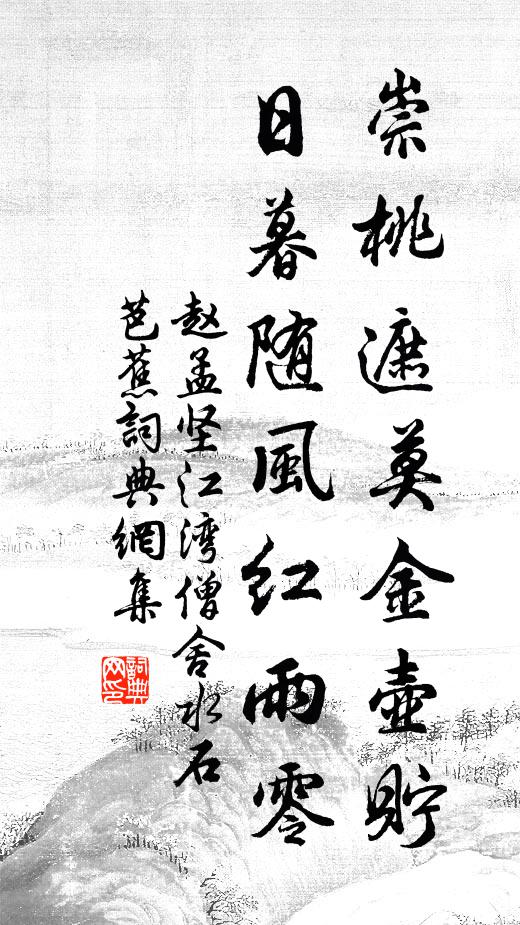 崇桃遮莫金壺貯
日暮随風紅雨零
赵孟坚江湾僧舍水石
芭蕉詞典網集
詞典网印